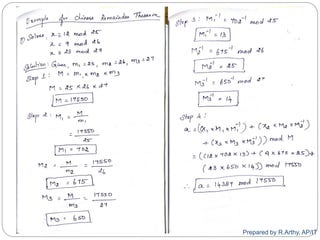 Example for Chinese Remainder Theorem
1) Solve, x ≡ 12 mod 25
x ≡ 9 mod 26
x ≡ 23 mod 27
Solution: Given, m1 = 25, m2 = 26, m3 = 27
Step 1: M = m1 × m2 × m3
M = 25 × 26 × 27
M = 17550
Step 2: M1 = M / m1
= 17550 / 25
M1 = 702
M2 = M / m2 = 17550 / 26
M2 = 675
M3 = M / m3 = 17550 / 27
M3 = 650
Step 3: M1⁻¹ = 702⁻¹ mod 25
M1⁻¹ = 13
M2⁻¹ = 675⁻¹ mod 26
M2⁻¹ = 25
M3⁻¹ = 650⁻¹ mod 27
M3⁻¹ = 14
Step 4:
a = ((x1 × M1 × M1⁻¹) + (x2 × M2 × M2⁻¹)
+ (x3 × M3 × M3⁻¹)) mod M
= ((12 × 702 × 13) + (9 × 675 × 25) +
(23 × 650 × 14)) mod 17550
∴ a = 14387 mod 17550
Prepared by R.Arthy, AP/IT